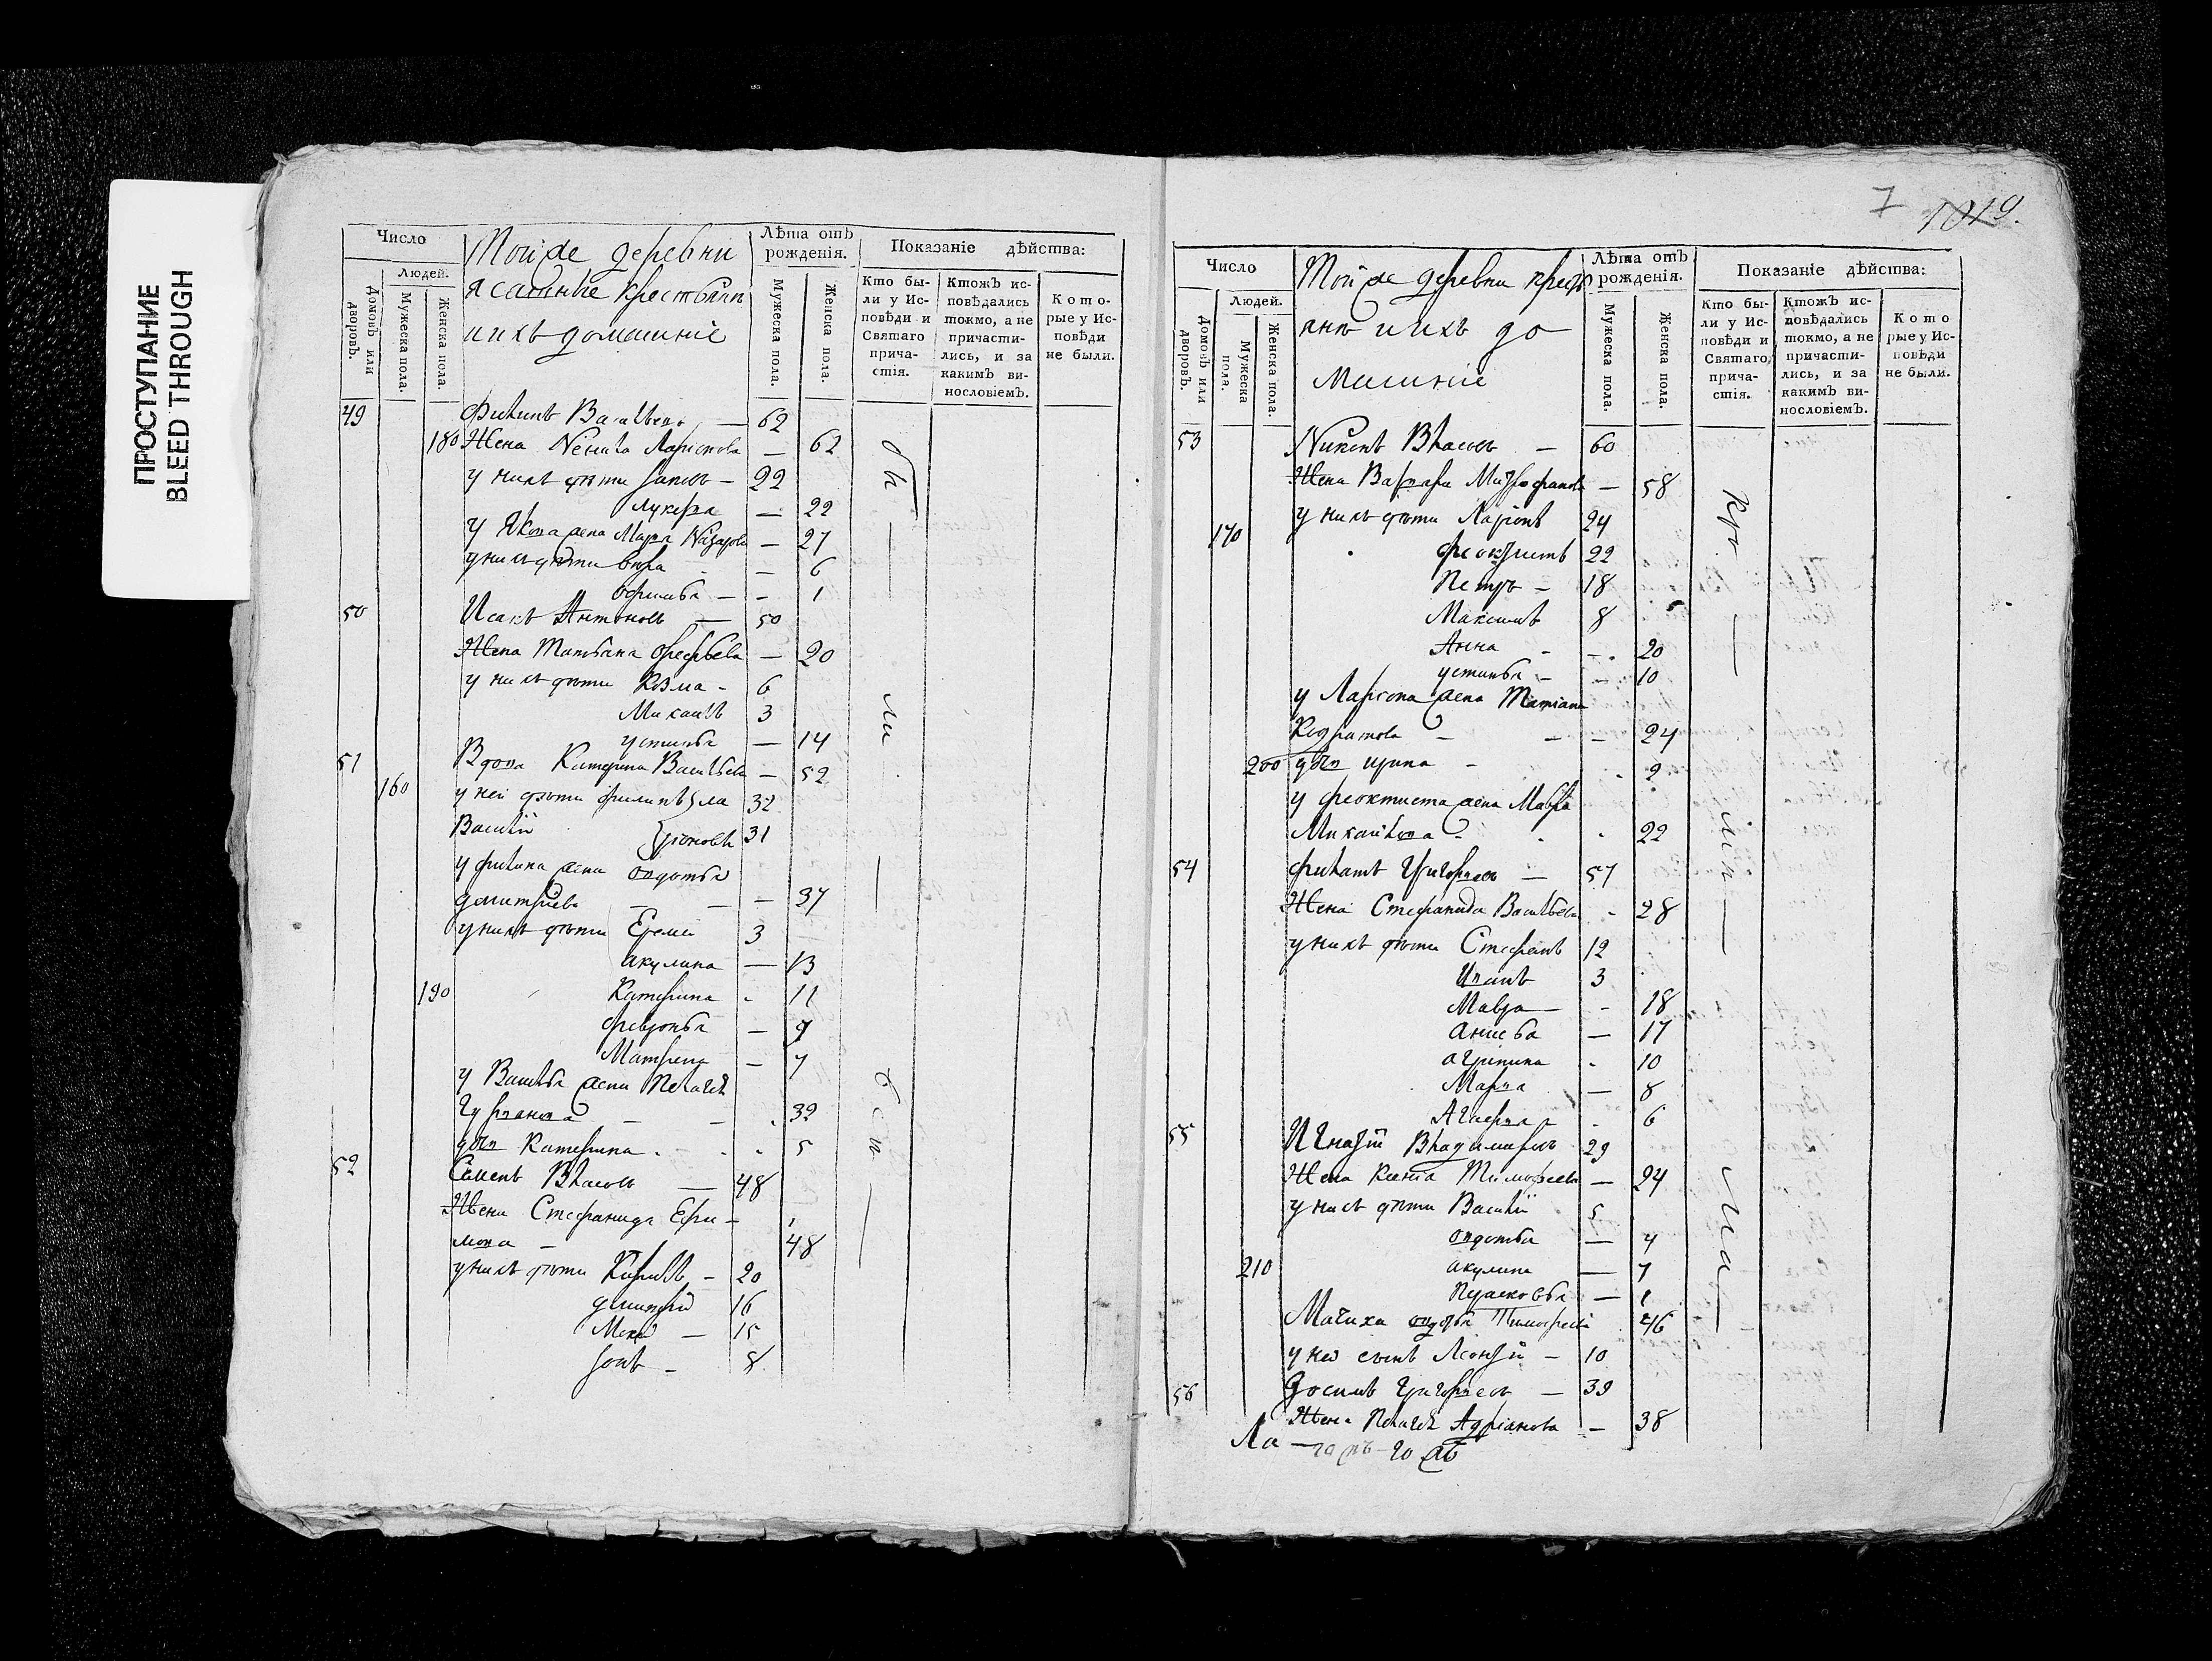 ПРОСТУПАНИЕ
BLEED THROUGH
Число
Людей.
Домовъ или дворовъ.
Мужеска пола.
Женска пола.
Той же деревни
ясашные крестьяня
и ихъ домашніе
Лѣта отъ рожденія.
Мужеска пола.
Женска пола.
Показаніе дѣйства:
Кто бы-
ли у Ис-
повѣди и
Святаго
прича-
стія.
Ктожъ ис-
повѣдались
токмо, а не
причасти-
лись, и за
какимъ ви-
нословіемъ.
Кото-
рые у Ис-
повѣди
не были.
49 Филипъ Васильевъ — 62
180 Жена Ненила Ларионова — 62
у нихъ дѣти Іаковъ — 22
Лукерья — 22
у Якова жена Марья Назарова — 27
у нихъ дѣти Вѣра — 6
Офимья — 1
50 Исакъ Антоновъ — 50
Жена Татьяна — 20
у нихъ дѣти Козма — 6
Михаилъ 3
Устинья — 14
51 Вдова Катерина Васильева — 52
160 у ней дѣти Филипъ Ла 32
Василій ріоновы 31
у Филипа жена Овдотья
Дмитріева — 37
у нихъ дѣти Еремей 3
Акулина — 13
190 Катерина — 11
Февронья — 9
Матрена — 7
у Василья жена Пелагея
— 32
дочь Катерина — 5
52 Семенъ Власовъ — 48
Жена Стефанида Ефи-
мова — 48
у нихъ дѣти Кирилъ — 20
Дмитрій 16
— 15
Іовъ — 8
7 1019.
Число
Людей.
Домовъ или дворовъ.
Мужеска пола.
Женска пола.
Той же деревни крестья
янѣ и ихъ до
машніе
Лѣта отъ рожденія.
Мужеска пола.
Женска пола.
Показаніе дѣйства:
Кто бы-
ли у Ис-
повѣди и
Святаго
прича-
стія.
Ктожъ ис-
повѣдались
токмо, а не
причасти-
лись, и за
какимъ ви-
нословіемъ.
Кото
рые у Ис-
повѣди
не были.
53 Никонъ Власовъ — 60
Жена Варвара Митрофанова — 58
у нихъ дѣти Ларіонъ 24
170 Феоктистъ 22
Петръ — 18
Максимъ 8
Анна — 20
Устинья — 10
у Ларіона жена Татіана
Кодратова — 24
200 дочь Ирина — 2
у Феоктиста жена Мавра
Михайлова — 22
54 Филатъ Григорьевъ — 57
Жена Стефанида Васильева — 28
у нихъ дѣти Стефанъ 12
Иванъ 3
Мавра — 18
Анисья — 17
Агрипина — 10
Марья — 8
Агафья — 6
55 Игнатій Владимировъ 29
Жена Ксенія Тимофеева — 24
у нихъ дѣти Василій 5
Овдотья — 4
210 Акулина — 7
Прасковья — 1
Мачиха Овдотья Тимофеева 46
у нея сынъ Леонтій — 10
56 Зосимъ Григорьевъ — 39
Жена Пелагея Адріанова — 38